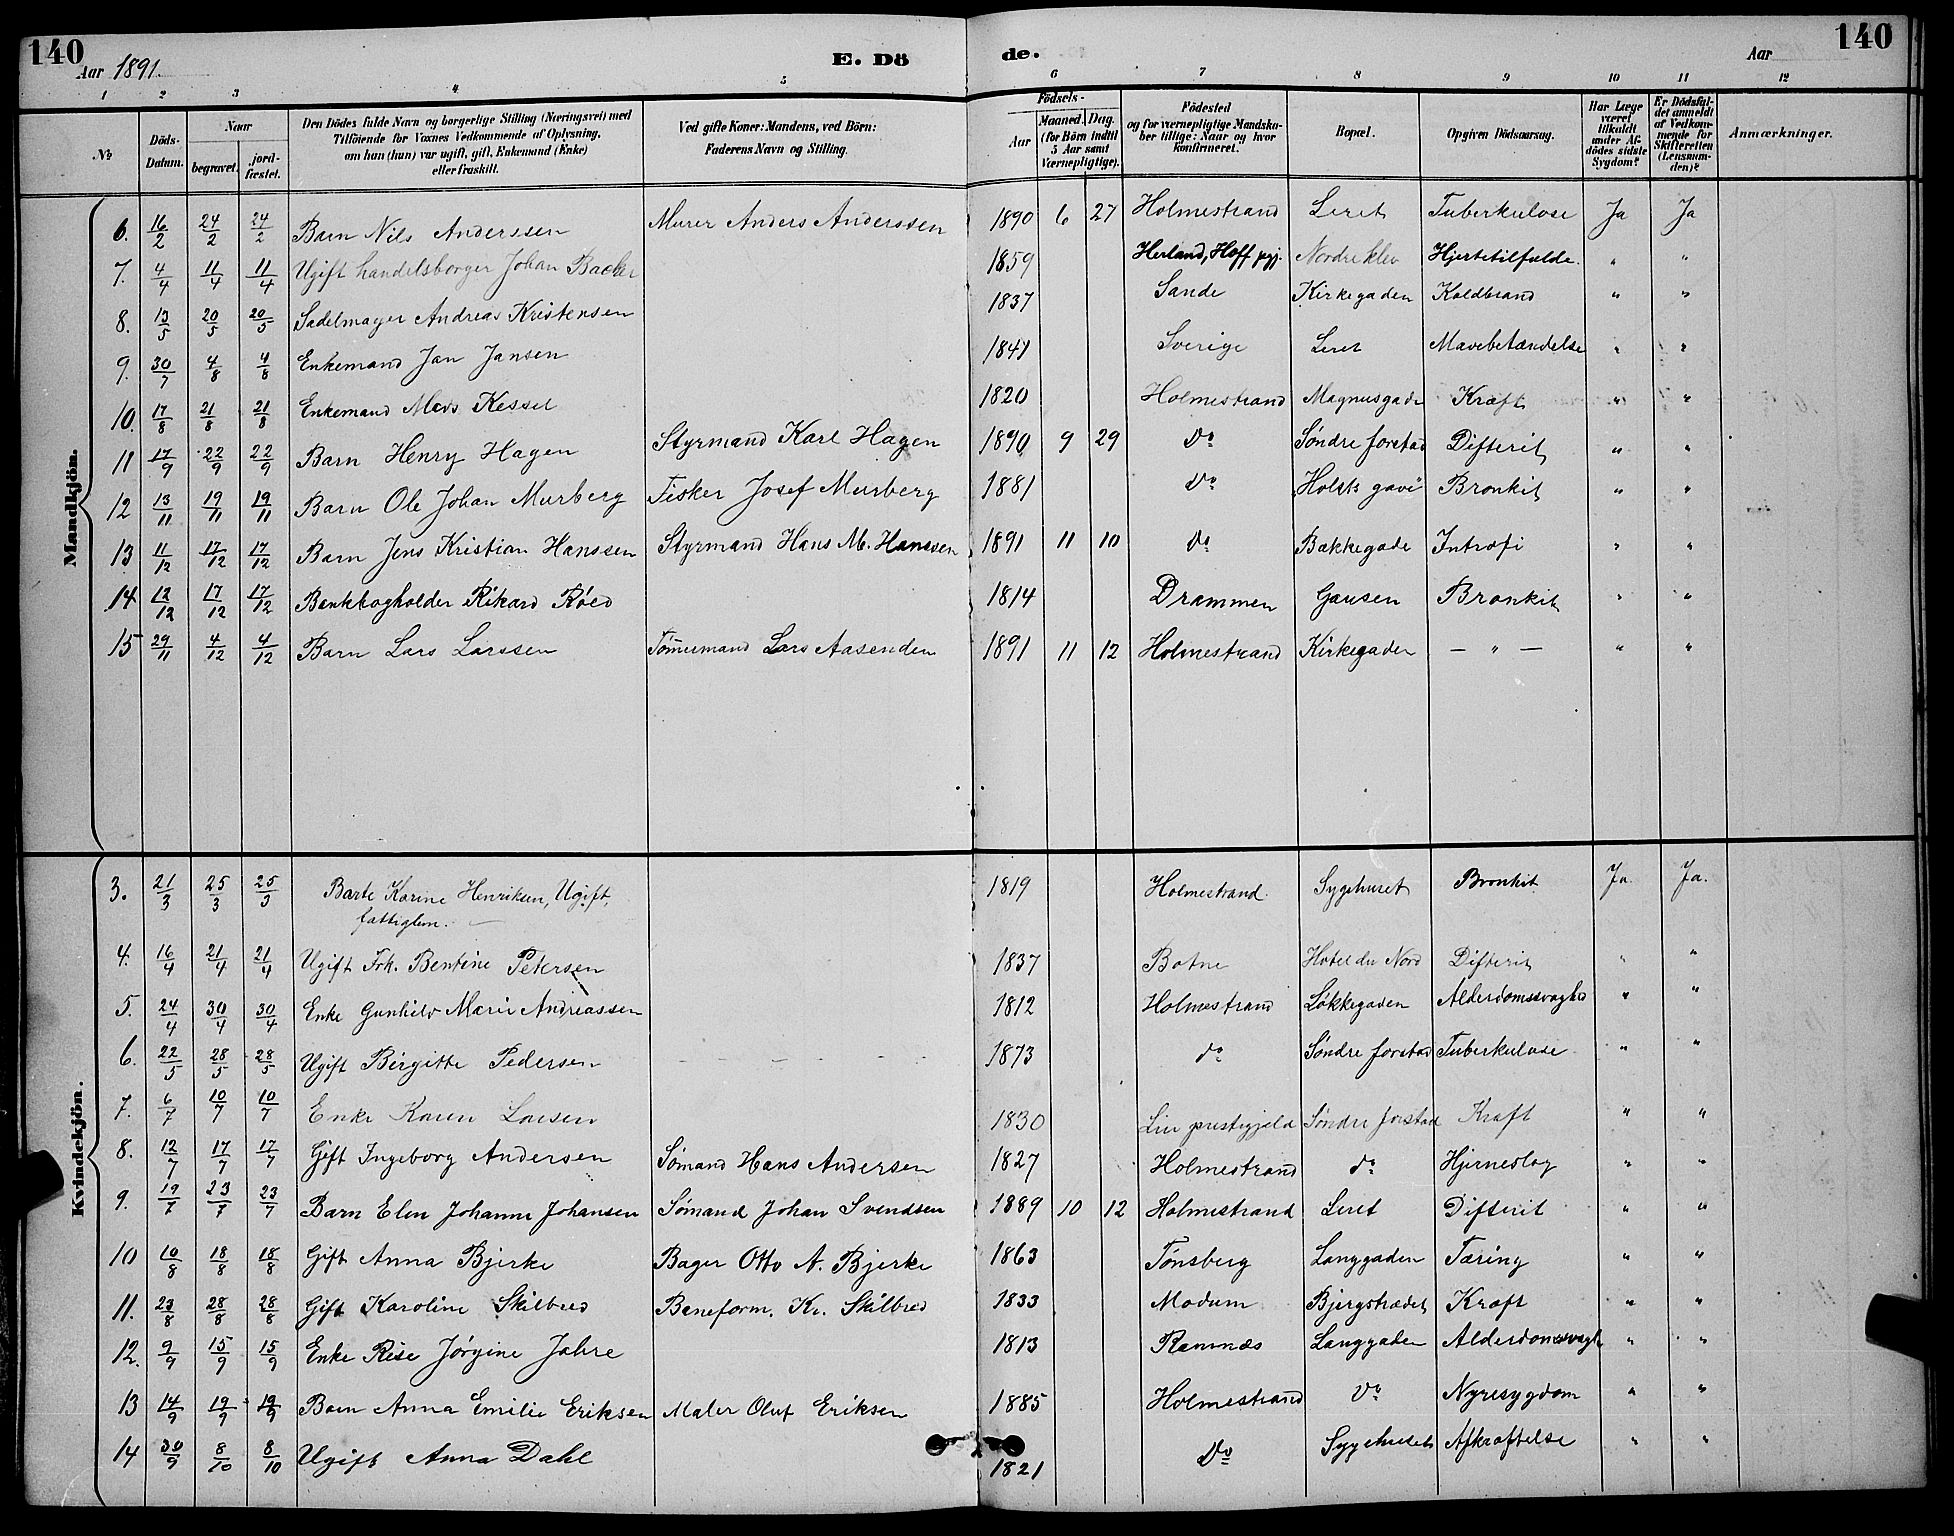 140 Aar 1891. E. Dö de. Aar 140
1 2 3 4 5 6 7 8 9 10 11 12
№ Döds-Datum. Naar begravet. jord-fæstet. Den Dödes fulde Navn og borgerlige Stilling (Næringsvei) med Tilföiende for Voxnes Vedkommende af Oplysning, om han (hun) var ugift, gift, Enkemand (Enke) eller fraskilt. Ved gifte Koner: Mandens, ved Börn: Faderens Navn og Stilling. Födsels- Aar Maaned. Dag. (for Börn indtil 5 Aar samt Værnepligtige). Födested og for værnepligtige Mandskaber tillige: Naar og hvor konfirmeret. Bopæl. Opgiven Dödsaarsag. Har Læge været tilkaldt under Afdödes sidste Sygdom? Er Dödsfaldet anmeldt af Vedkommende for Skifteretten (Lensmanden)? Anmærkninger.
Mandkjön.
6. 16/2 24/2 24/2 Barn Nils Anderssen Murer Anders Anderssen 1890 6 27 Holmestrand Leret Tuberkulose Ja Ja
7. 4/4 11/4 11/4 Ugift handelsborger Johan Backer 1859 Herland, Hoff pgj. Nordre klev Hjertetilfælde. " "
8. 13/5 20/5 20/5 Sadelmager Andreas Kristensen 1837 Sande Kirkegaden Koldbrand " "
9. 30/7 4/8 4/8 Enkemand Jan Jansen 1841 Sverige Leret Mavebetændelse " "
10. 17/8 21/8 21/8 Enkemand Mads Kessel 1820 Holmestrand Magnusgade Kræft " "
11 17/9 22/9 22/9 Barn Henry Hagen Styrmand Karl Hagen 1890 9 29 Do Søndre forstad Difterit " "
12 13/11 19/11 19/11 Barn Ole Johan Murberg Fisker Josef Murberg 1881 Do Holsts gave Bronkit " "
13 11/12 17/12 17/12 Barn Jens Kristian Hanssen Styrmand Hans M. Hanssen 1891 11 10 do Bakkegade Introfi " "
14 12/12 17/12 17/12 Bankbogholder Rikard Røed 1814 Drammen Gausen Bronkit " "
15 29/11 4/12 4/12 Barn Lars Larssen Tømmermand Lars Aasenden 1891 11 12 Holmestrand Kirkegaden — " — " "
Kvindekjön.
3. 21/3 25/3 25/3 Barte Karine Henriksen, Ugift, 1819 Holmestrand Sygehuset Bronkit Ja. Ja.
fattiglem.
4. 16/4 21/4 21/4 Ugift Frk. Bentine Petersen 1837 Botne Hotel du Nord Difterit " "
5. 24/4 30/4 30/4 Enke Gunhild Marie Andreassen 1812 Holmestrand Løkkegaden Alderdomssvaghed " "
6. 22/5 28/5 28/5 Ugift Birgitte Pedersen 1873 do Søndre forstad Tuberkulose " "
7. 6/7 10/7 10/7 Enke Karen Larsen 1830 Lier prestegjeld Søndre forstad Kræft " "
8. 12/7 17/7 17/7 Gift Ingeborg Andersen Sømand Hans Andersen 1827 Holmestrand do Hjerneslag " "
9. 19/7 23/7 23/7 Barn Elen Johanne Johansen Sømand Johan Svendsen 1889 10 12 Holmestrand Leret Difterit " "
10 10/8 18/8 18/8 Gift Anna Bjerke Bager Otto A. Bjerke 1863 Tønsberg Langgaden Tæring " "
11. 23/8 28/8 28/8 Gift Karoline Skilbred Baneform. Kr. Skilbred 1833 Modum Bjergstrædet Kræft " "
12. 9/9 15/9 15/9 Enke Rise Jørgine Jahre 1813 Ramnæs Langgaden Alderdomssvagh " "
13 14/9 19/9 19/9 Barn Anna Emilie Eriksen Maler Oluf Eriksen 1885 Holmestrand Do Nyresygdom " "
14 30/9 8/10 8/10 Ugift Anna Dahl 1821 Do Sygehuset Afkræftelse " "